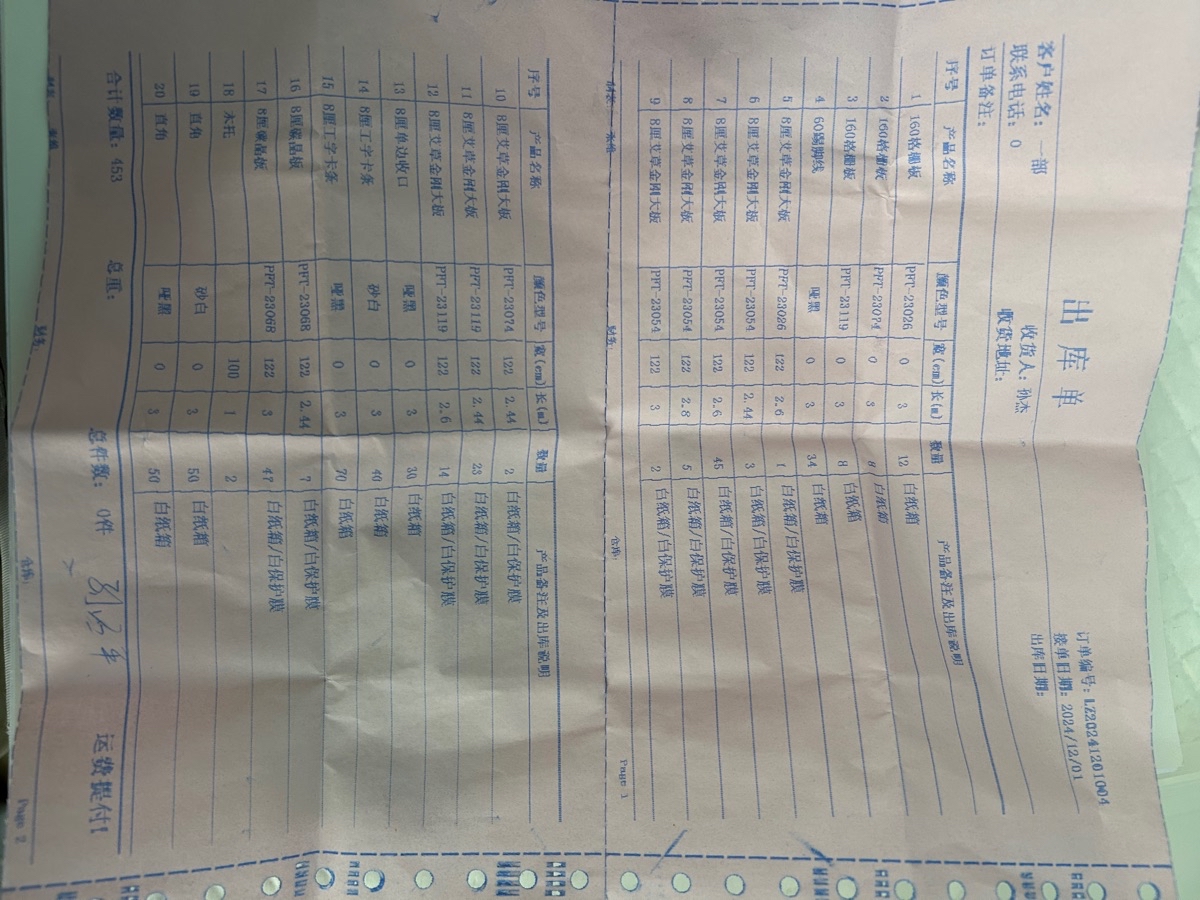 出库单
订单编号: LZ20241201004
客户姓名: 一部 收货人: 孙杰 接单日期: 2024/12/01
联系电话: 0 收货地址: 出库日期:
订单备注:
序号 产品名称 颜色型号 宽(cm) 长(m) 数量 产品备注及出库说明
1 160格栅板 PPT-23026 0 3 12 白纸箱
2 160格栅板 PPT-23074 0 3 8 白纸箱
3 160格栅板 PPT-23119 0 3 8 白纸箱
4 60踢脚线 哑黑 0 3 34 白纸箱
5 8厘艾草金刚大板 PPT-23026 122 2.6 1 白纸箱/白保护膜
6 8厘艾草金刚大板 PPT-23054 122 2.44 3 白纸箱/白保护膜
7 8厘艾草金刚大板 PPT-23054 122 2.6 45 白纸箱/白保护膜
8 8厘艾草金刚大板 PPT-23054 122 2.8 5 白纸箱/白保护膜
9 8厘艾草金刚大板 PPT-23054 122 3 2 白纸箱/白保护膜
财务: 仓库: Page 1
序号 产品名称 颜色型号 宽(cm) 长(m) 数量 产品备注及出库说明
10 8厘艾草金刚大板 PPT-23074 122 2.44 2 白纸箱/白保护膜
11 8厘艾草金刚大板 PPT-23119 122 2.44 23 白纸箱/白保护膜
12 8厘艾草金刚大板 PPT-23119 122 2.6 14 白纸箱/白保护膜
13 8厘单边收口 哑黑 0 3 30 白纸箱
14 8厘工字卡条 砂白 0 3 40 白纸箱
15 8厘工字卡条 哑黑 0 3 70 白纸箱
16 8厘碳晶板 PPT-23068 122 2.44 7 白纸箱/白保护膜
17 8厘碳晶板 PPT-23068 122 3 47 白纸箱/白保护膜
18 木托 100 1 2
19 直角 砂白 0 3 50 白纸箱
20 直角 哑黑 0 3 50 白纸箱
合计数量: 453 总重: 总件数: 0件 运费提付!
财务: 仓库: Page 2